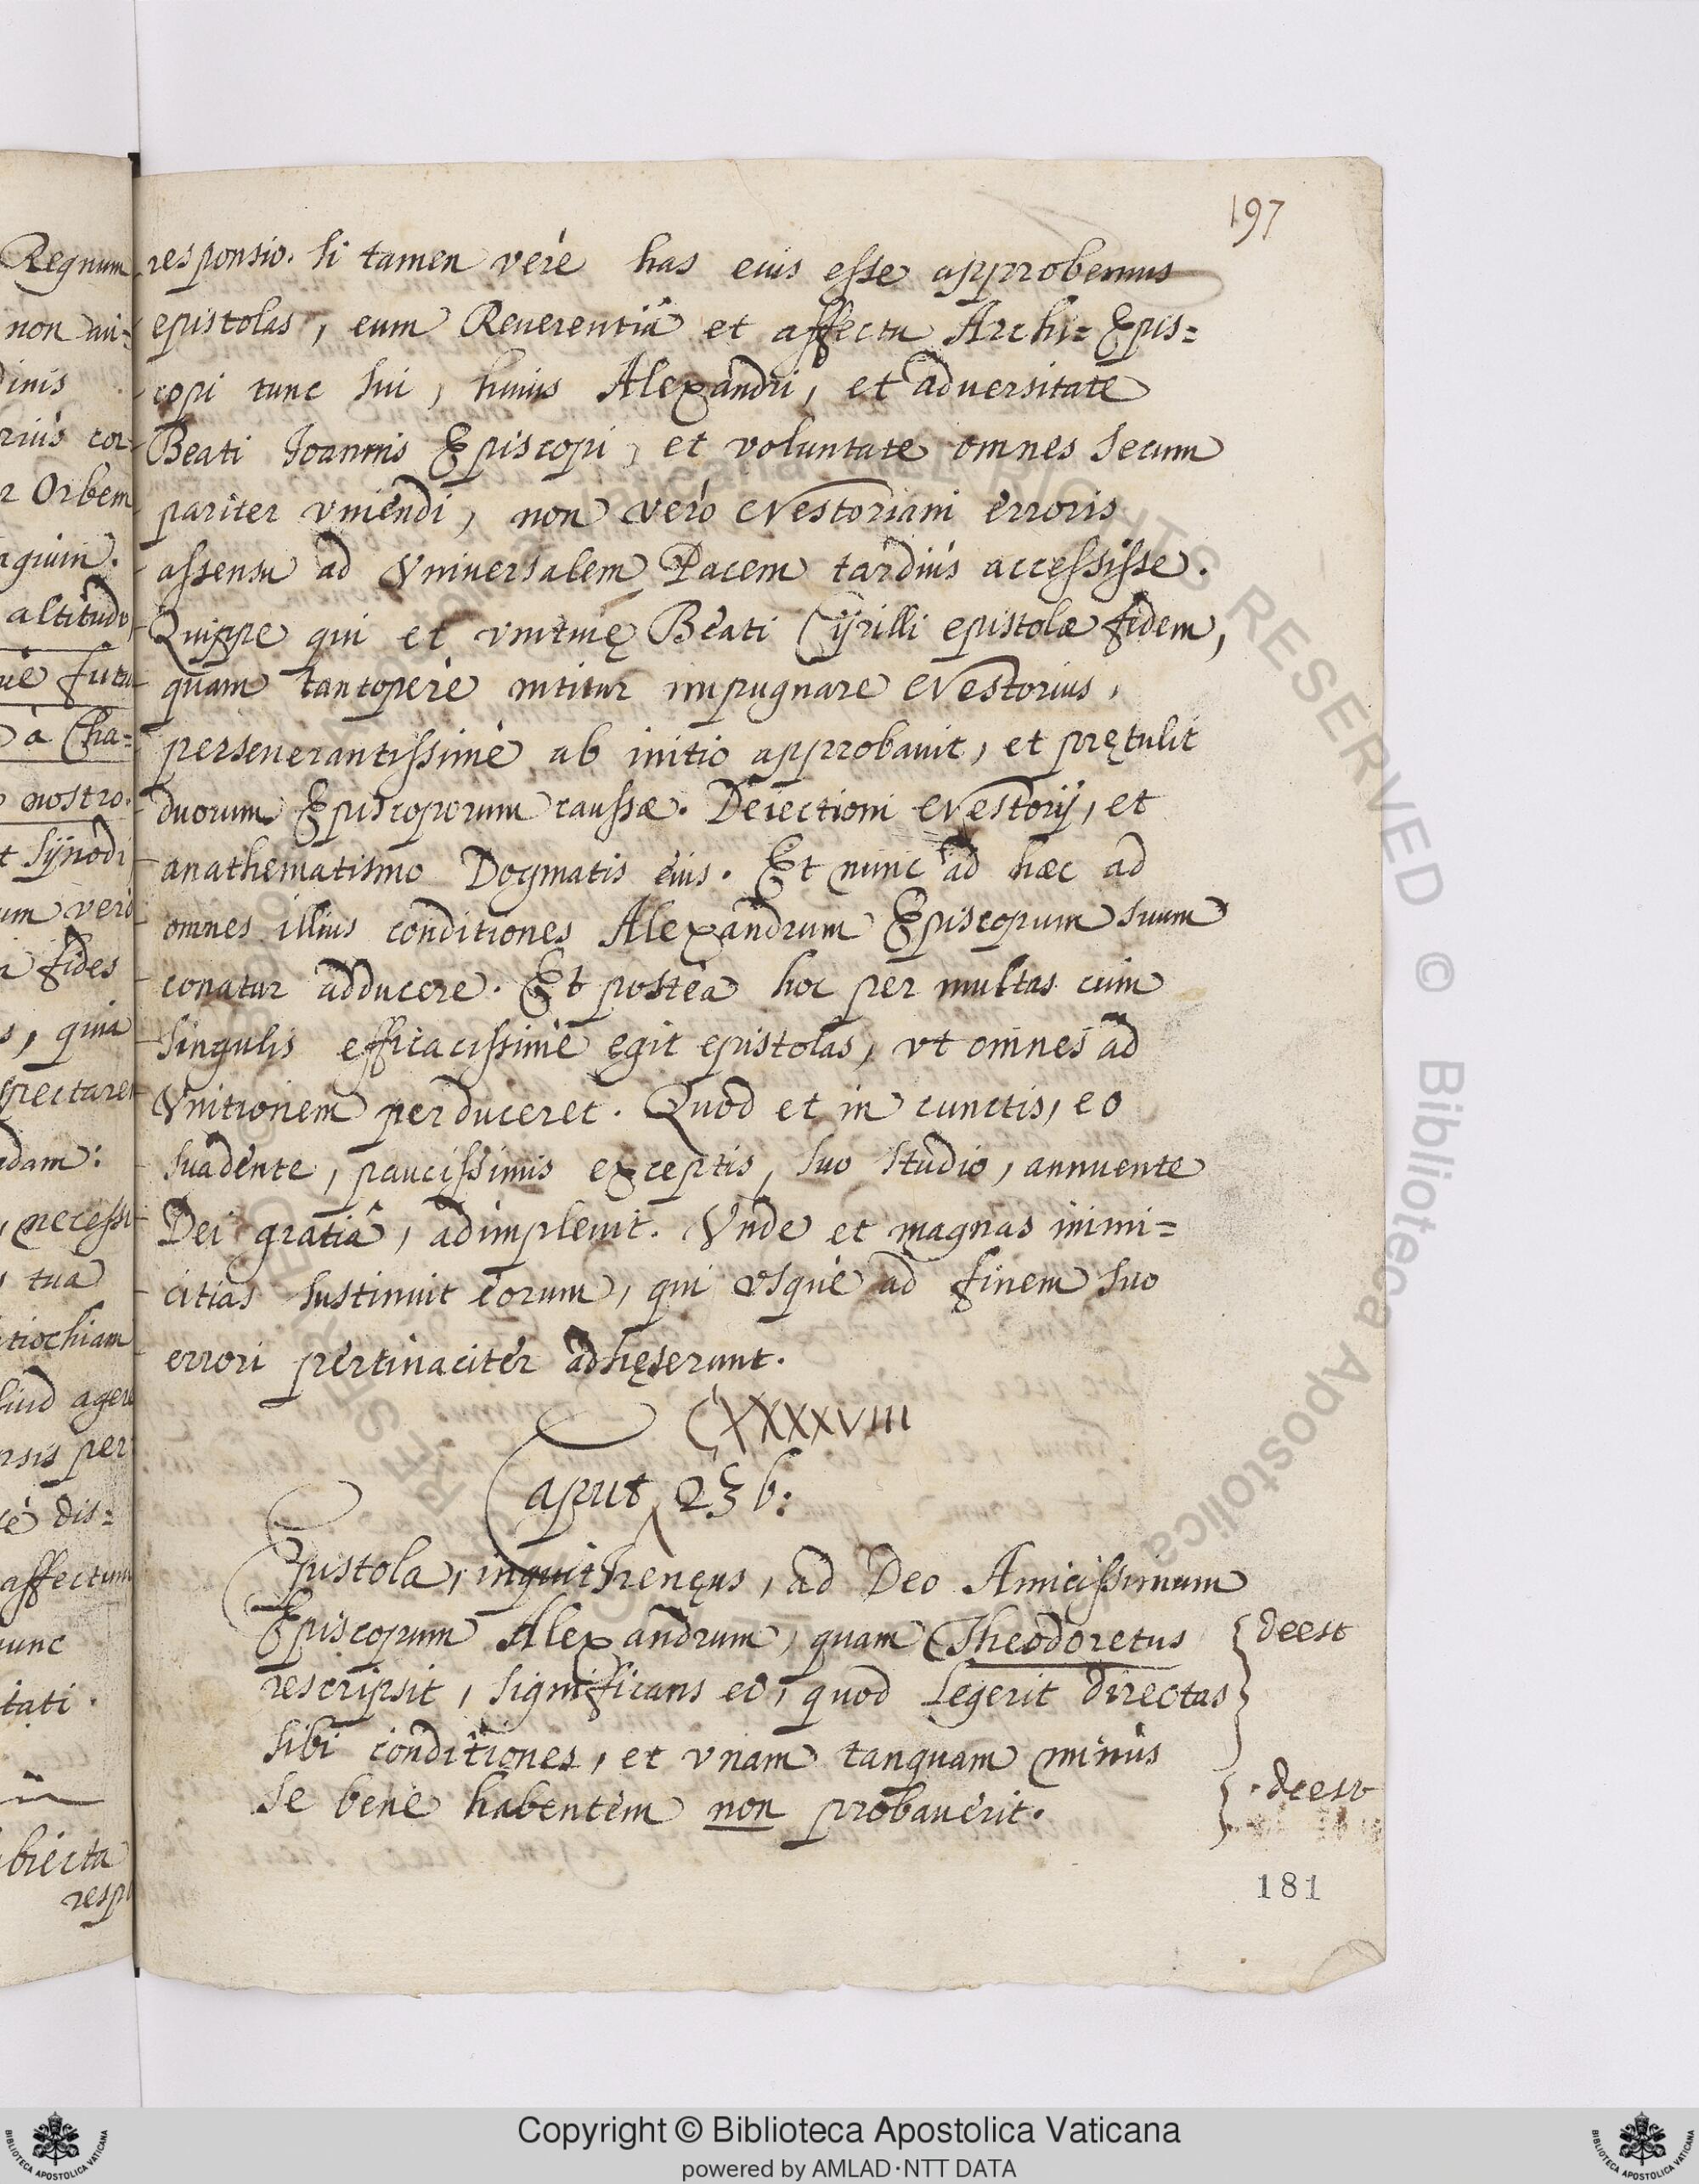 197
responsio. si tamen verè has eius esse approbemus
epistolas, eum Reuerentiâ et affectu Archi=Epis=
copi tunc sui, huius Alexandri, et adversitate
Beati Ioannis Episcopi, et voluntate omnes secum
pariter vniendi, non verò Nestoriani erroris
assensu ad Vniversalem Pacem tardiùs accessisse.
Quippe qui et vnitiuę Beati Cyrilli epistolæ fidem,
quam tantoperè nititur impugnare Nestorius,
perseuerantissimè ab initio approbauit, et prętulit
duorum Episcoporum caussæ. Deiectioni Nestorij, et
anathematismo Dogmatis eius. Et nunc ad hæc ad
omnes illius conditiones Alexandrum Episcopum suum
conatur adducere. Et posteà hoc per multas cum
singulis efficacissimè egit epistolas, vt omnes ad
Vnitionem perduceret. Quod et in cunctis, eo
suadente, paucissimis exceptis, suo studio, annuente
Dei gratiâ, adimpleuit. Vnde et magnas inimi=
citias sustinuit eorum, qui vsquè ad finem suo
errori pertinacitèr adhęserunt.
CXXXXVIII
Caput 236:
Epistola, inquit Irenęus, ad Deo Amicissimum
Episcopum Alexandrum, quam Theodoretus
deest
rescripsit, significans ei, quod legerit directas
sibi conditiones, et vnam tanquam minùs
se benè habentem non probauerit.
deest
181
Regnum
non
dinis
riùs cor-
r Orbem
agium.
altitudo
uè futu
à Cha=
nostro.
t Synodi
um verò
a fides
s, quia
spectare
dam:
, necessi
s tua
tiochiam
liud agere
rsis per
dis=
affectum
nunc
tati.
biecta
resp
Copyright © Biblioteca Apostolica Vaticana
powered by AMLAD·NTT DATA